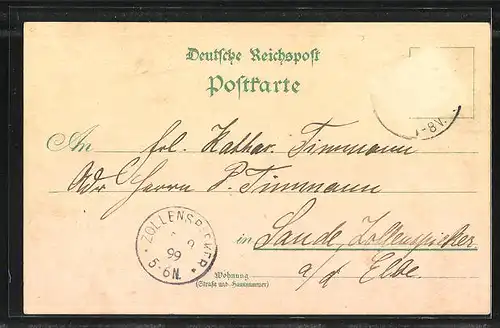 Deutsche Reichspost
Postkarte
7-8V.
An Frl. Kathar. Timmann
Adr Herrn P. Timmann
ZOLLENSPIEKER
2
99
5-6N.
in Sande, Zollenspieker
a/d Elbe
Wohnung
(Straße und Hausnummer)